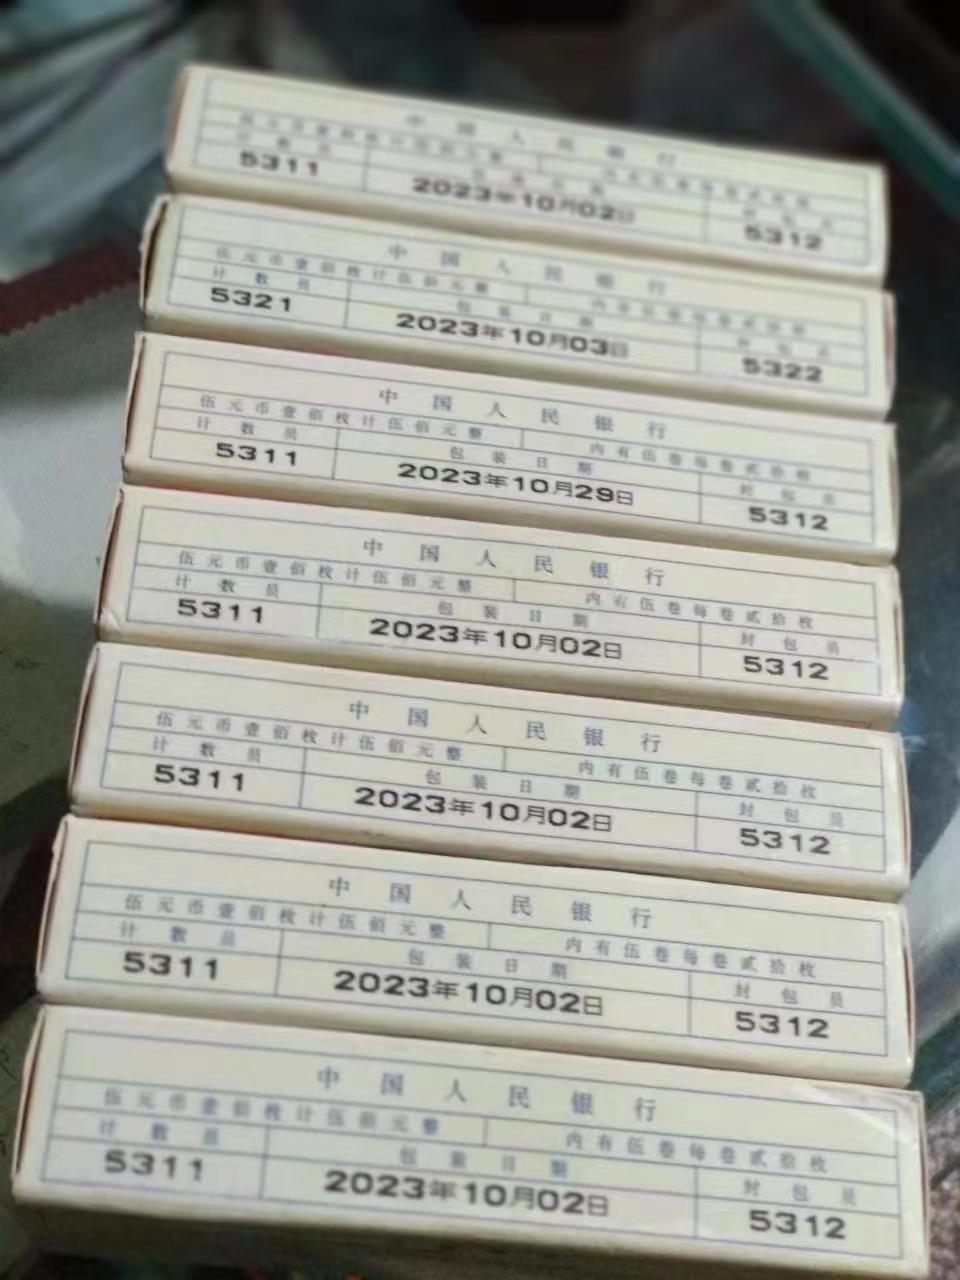 中国人民银行
5311 2023年10月02日 5312
中国人民银行
伍元币壹佰枚计伍佰元整 内有伍卷每卷贰拾枚
计数员 包装日期 封包员
5321 2023年10月03日 5322
中国人民银行
伍元币壹佰枚计伍佰元整 内有伍卷每卷贰拾枚
计数员 包装日期 封包员
5311 2023年10月29日 5312
中国人民银行
伍元币壹佰枚计伍佰元整 内有伍卷每卷贰拾枚
计数员 包装日期 封包员
5311 2023年10月02日 5312
中国人民银行
伍元币壹佰枚计伍佰元整 内有伍卷每卷贰拾枚
计数员 包装日期 封包员
5311 2023年10月02日 5312
中国人民银行
伍元币壹佰枚计伍佰元整 内有伍卷每卷贰拾枚
计数员 包装日期 封包员
5311 2023年10月02日 5312
中国人民银行
伍元币壹佰枚计伍佰元整 内有伍卷每卷贰拾枚
计数员 包装日期 封包员
5311 2023年10月02日 5312